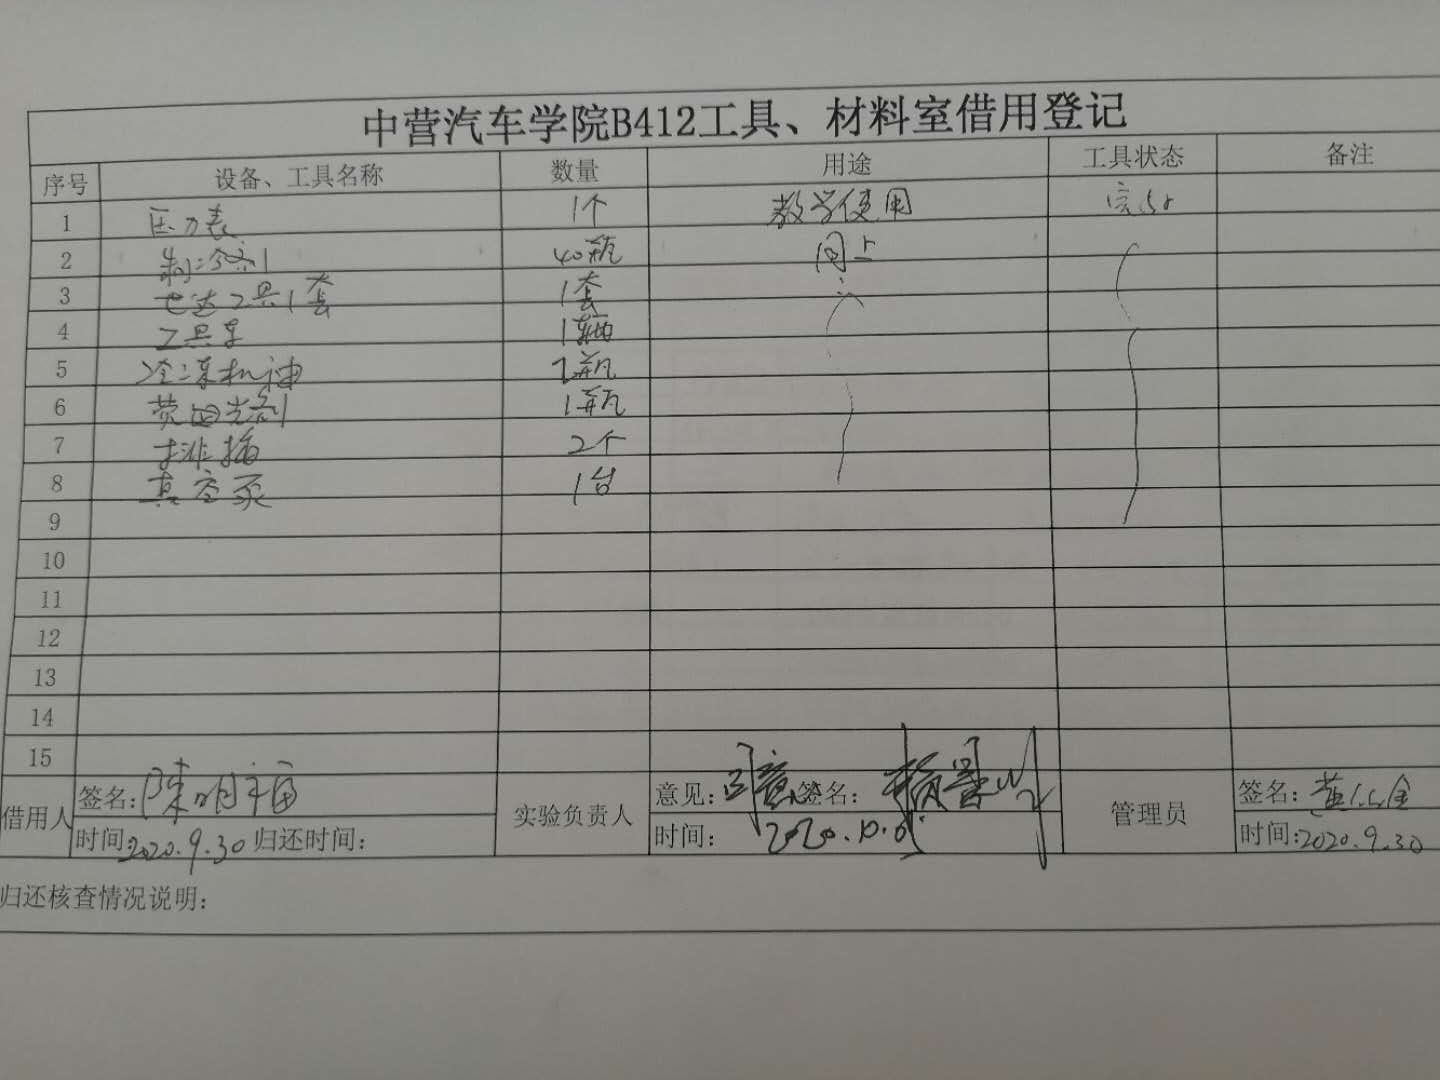 中营汽车学院B412工具、材料室借用登记
序号 设备、工具名称 数量 用途 工具状态 备注
1 压力表 1个 教学使用 完好
2 制冷剂 40瓶 同上
3 世达工具1套 1套
4 工具车 1辆
5 冷冻机油 2瓶
6 荧光剂 1瓶
7 排插 2个
8 真空泵 1台
9
10
11
12
13
14
15
借用人 签名：陈明福 实验负责人 意见：同意 签名： 管理员 签名：黄
时间：2020.9.30 归还时间： 时间：2020.10.8 时间：2020.9.30
归还核查情况说明：